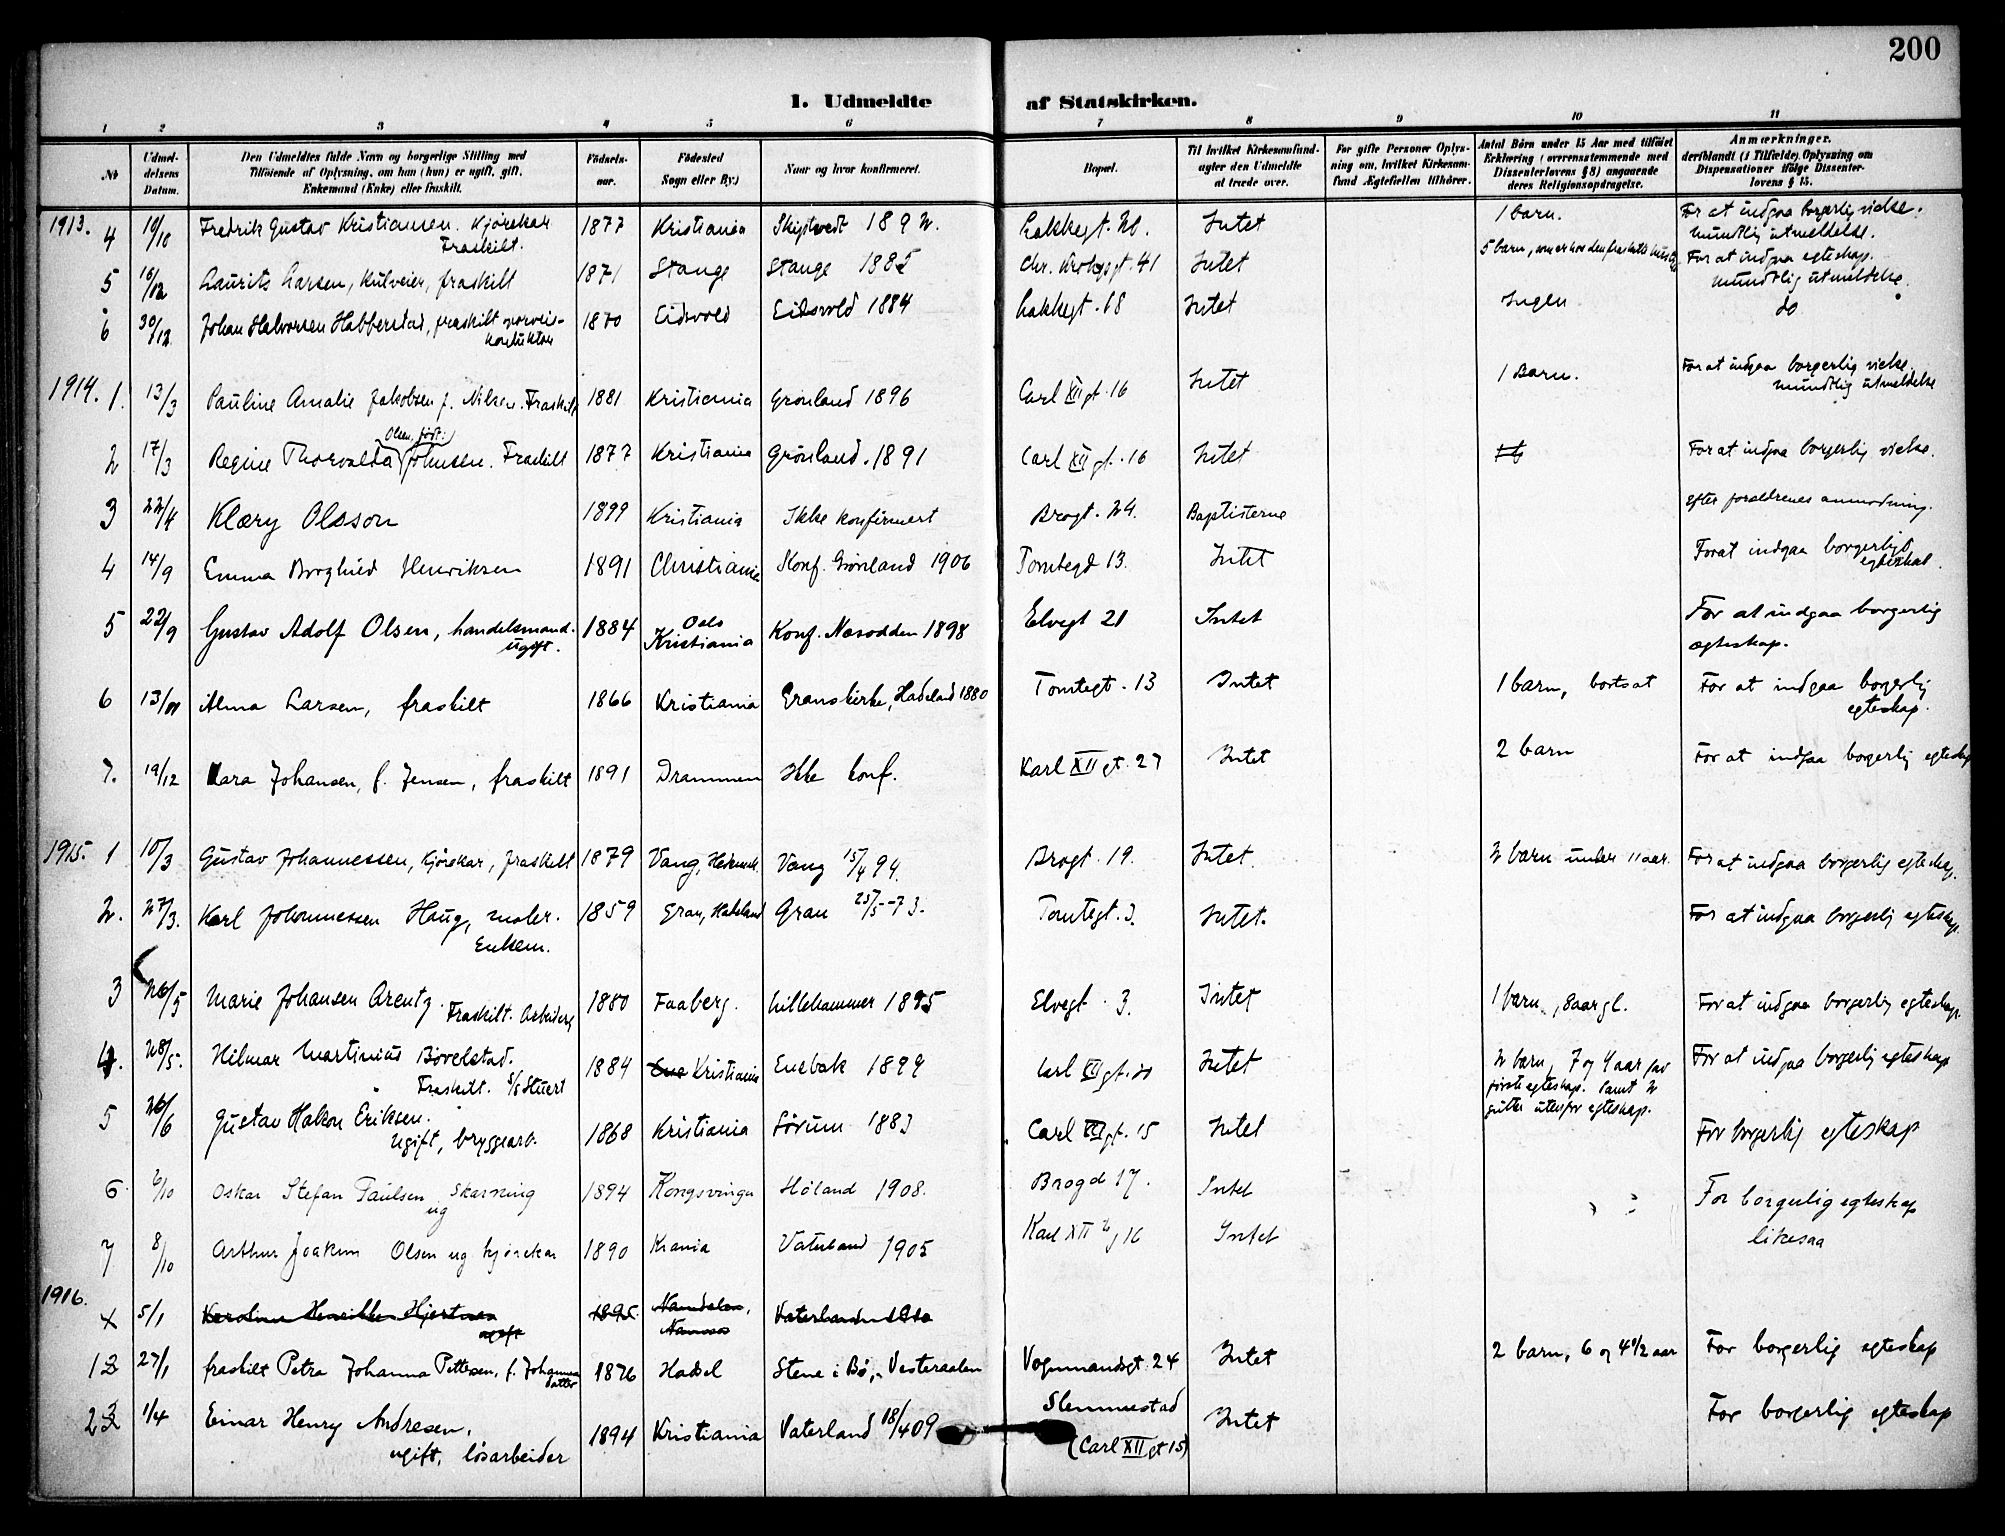 200
1. Udmeldte af Statskirken.
1 2 3 4 5 6 7 8 9 10 11
No
Udmel-
delsens
Datum.
Den Udmeldtes fulde Navn og borgerlige Stilling med
Tilføiende af Oplysning, om han (hun) er ugift, gift,
Enkemand (Enke) eller fraskilt.
Fødsels-
aar.
Fødested
Sogn eller By.)
Naar og hvor konfirmeret.
Bopæl.
Til hvilket Kirkesamfund
agter den Udmeldte
at træde over.
For gifte Personer Oplys-
ning om, hvilket Kirkesam-
fund Ægtefællen tilhører.
Antal Børn under 15 Aar med tilføiet
Erklæring (overensstemmende med
Dissenterlovens § 8) angaaende
deres Religionsopdragelse.
Anmærkninger.
deriblandt (i Tilfælde) Oplysning om
Dispensationer ifølge Dissenter-
lovens § 15.
1913. 4 10/10 Fredrik Gustav Kristiansen. Kjørekar Fraskilt. 1877 Kristiania 1892. Lakkegt. Intet 1 barn. For at indgaa borgerlig vielse. mundtlig utmeldelse.
5 16/12 Laurits Larsen, fraskilt 1871 Stange Stange 1885 41 Intet 5 barn, For at indgaa egteskap. mundtlig utmeldelse.
6 30/12 Johan Halvorsen Habberstad, fraskilt sporveis-konduktør 1870 Eidsvold Eidsvold 1884 Lakkegt. 68 Intet Ingen do
1914. 1. 13/3 Pauline Amalie Jakobsen f. Nilsen. Fraskilt 1881 Kristiania Grønland 1896 Carl XII gt. 16 Intet 1 Barn. For at indgaa borgerlig vielse mundtlig utmeldelse
2 17/3 Regine Thorvalda (Olsen, født:) Johnsen. Fraskilt 1877 Kristiania Grønland. 1891 Carl XII gt. 16 Intet For at indgaa borgerlig vielse.
3 22/4 Klæry Olsson 1899 Kristiania Ikke konfirmert Brogt. 24. Baptisterne efter forældrenes anmodning.
4 14/9 Emma Borghild Henriksen 1891 Christiania Konf. Grønland 1906 Tomtegd 13. Intet For at indgaa borgerligt egteskab.
5 22/9 Gustav Adolf Olsen, handelsmand. ugift. 1884 Oslo Kristiania Konf. Nesodden 1898 Elvegt 21 Intet For at indgaa borgerlig ægteskap.
6 13/11 Alma Larsen, fraskilt 1866 Kristiania Granskirke, Hadeland 1880 Tomtegt. 13 Intet 1 barn, bortsat For at indgaa borgerlig egteskap.
7. 19/12 Klara Johansen, f. Jensen, fraskilt 1891 Drammen Ikke konf. Karl XII gt. 27 Intet 2 barn For at indgaa borgerlig egteskap
1915. 1 10/3 Gustav Johannessen, kjørekar, fraskilt 1879 Vang, Hedemark. Vang 15/4 94. Brogt. 19. Intet 2 barn under 11 aar. For at indgaa borgerlig egteskap.
2. 27/3. Karl Johannessen Haug, maler. Enkem. 1859 Gran, Hadeland Gran 25/5-73. Tomtegt. 3. Intet. For at indgaa borgerlig egteskap.
3 26/5 Marie Johansen Arentz. Fraskilt. Arbeiders 1880 Faaberg. Lillehammer 1895 Elvegt. 3. Intet 1 barn, 8 aar gl. For at indgaa borgerlig egteskap.
4. 28/5. Hilmar Martinius Børelstad. Fraskilt. S/S Stuert 1884 Ene Kristiania Enebak 1899 Carl XII gt. 11 Intet 2 barn, 7 og 4 aar fra første egteskap. samt 2 gutter utenfor egteskap. For at indgaa borgerlig egteskap
5 26/6 Gustav Hakon Eriksen. ugift, bryggearb. 1868 Kristiania Sørum 1883 Carl XII gt. 15 Intet For borgerlig egteskap
6 6/10 Oskar Stefan Paulsen ug 1894 Kongsvinger Høland 1908. Brogd 17. Intet For borgerlig egteskap
7 8/10 Arthur Joakim Olsen ug kjørekar 1890 Krania Vaterland 1905 Karl XII g 16 Intet likesaa
1916. 5/1 Karoline Henrikke Hjertnes ugift 1895 Namdalen, Namsos Vaterland
1 2 27/1 fraskilt Petra Johanna Pettersen, f. Johannesdatter 1876 Hadsel Stene i Bø, Vesteraalen Vognmandsgt. 24 Intet 2 barn, 6 og 4 1/2 aar For borgerlig egteskap
2 3 1/4 Einar Henry Andresen, ugift, løsarbeider 1894 Kristiania Vaterland 18/4 09 Slemmestad (Carl XII gt 15) Intet For borgerlig egteskap